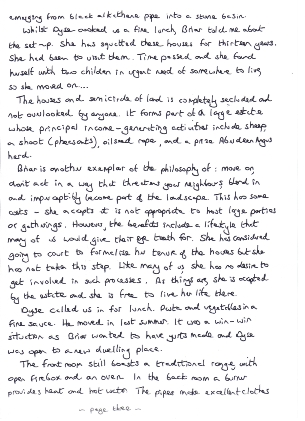 emerging from black alkathene pipe into a stone basin.
Whilst Dyse cooked us a fine lunch, Briar told me about
the set-up. She has squatted these houses for thirteen years.
She had been to visit them. Time passed and she found
herself with two children in urgent need of somewhere to live,
so she moved on....
The houses and semicircle of land is completely secluded and
not overlooked by anyone. It forms part of a large estate
whose principal income-generating activities include sheep,
a shoot (pheasants), oilseed rape, and a prize Aberdeen Angus
herd.
Briar is another exemplar of the philosophy of: move on,
don't act in a way that threatens your neighbours, blend in
and imperceptibly become part of the landscape. This has some
costs - she accepts it is not appropriate to host large parties
or gatherings. However, the benefits include a lifestyle that
many of us would give their eye teeth for. She has considered
going to court to formalise her tenure of the houses but she
has not taken this step. Like many of us she has no desire to
get involved in such processes. As things are, she is accepted
by the estate and she is free to live her life there.
Dyse called us in for lunch. Pasta and vegetables in a
fine sauce. He moved in last summer. It was a win-win
situation as Briar wanted to have yurts made and Dyse
was open to a new dwelling place.
The front room still boasts a traditional range with
open firebox and an oven. In the back room a burner
provides heat and hot water. The pipes make excellent clothes
~ page three ~